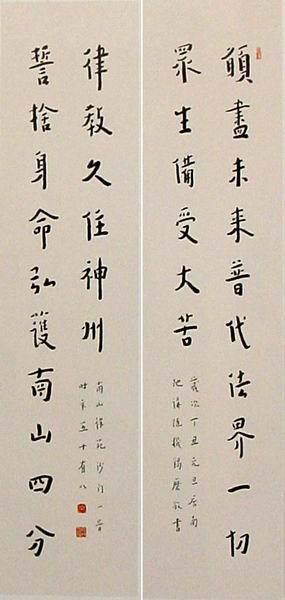 願盡未来普代法界一切
眾生備受大苦
歲次丁丑元旦南
陀講隨機羯磨敬書
誓捨身命弘護南山四分
律教久住神州
南山律苑沙門一音
時年五十有八